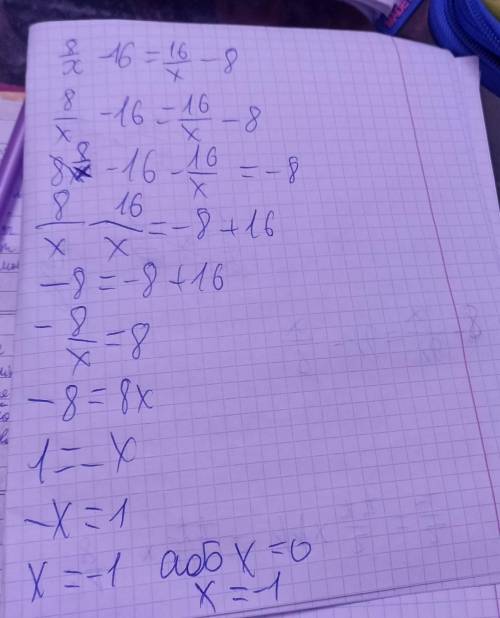 8/x - 16 = 16/x - 8
8/x - 16 = 16/x - 8
8/x - 16 - 16/x = -8
8/x - 16/x = -8 + 16
-8 = -8 + 16
-8/x = 8
-8 = 8x
1 = -x
-x = 1
x = -1 або x = 0
x = -1